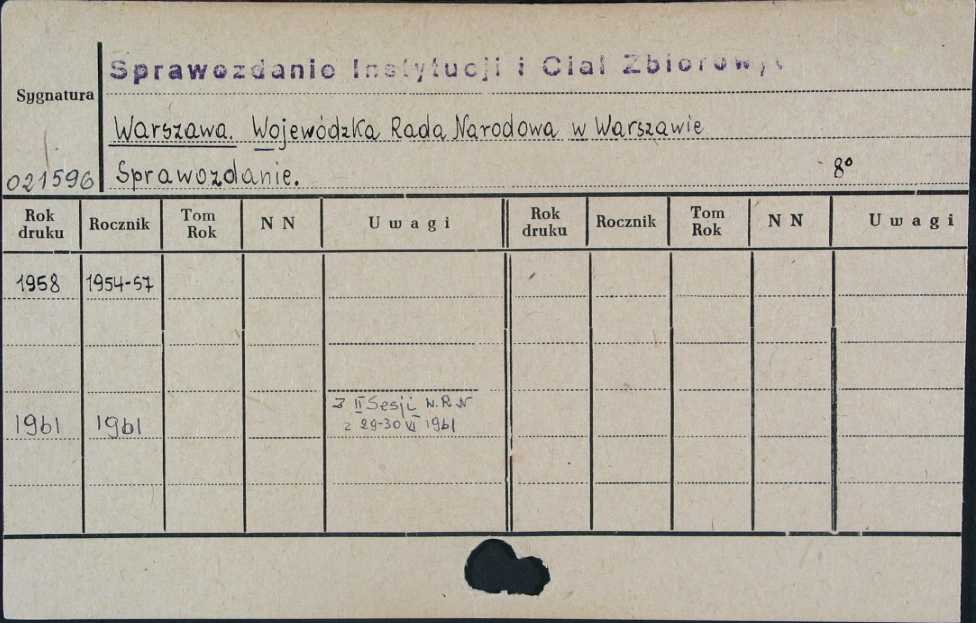 Sprawozdanie Instytucji i Ciał Zbiorowyc
Sygnatura
Warszawa. Wojewódzka Rada Narodowa w Warszawie
021596 Sprawozdanie. 8°
Rok druku Rocznik Tom Rok N N Uwagi Rok druku Rocznik Tom Rok N N Uwagi
1958 1954-57
1961 1961 Z II Sesji W.R.N
z 29-30 VI 1961